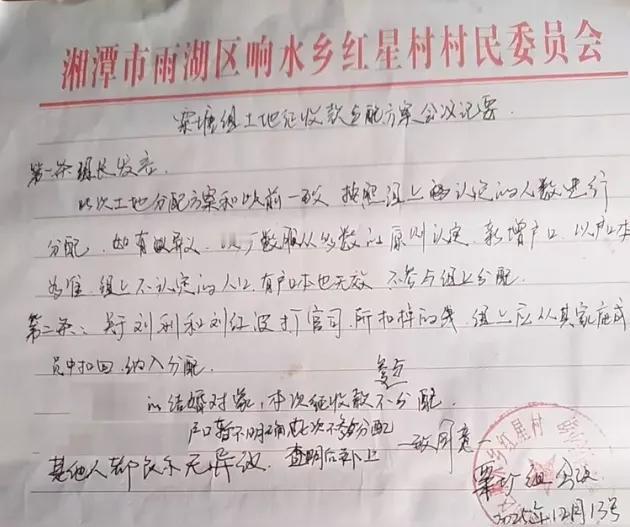 湘潭市雨湖区响水乡红星村村民委员会
组土地征收款分配方案会议记要
第一条组长发言.
此次土地分配方案和以前一致 按照组上确认定的人数进行
分配. 如有异议. 以少数服从多数的原则认定. 新增户口. 以户口本
为准. 组上不认定的人口. 有户口本也无效 不参与组上分配.
第二条: 关于刘利和刘红波打官司. 所扣掉的钱. 组上应从其家庭成
员中扣回. 纳入分配.
参与
的结婚对象, 本次征收款不分配.
户口暂不明确 此次不参与分配
一致同意
其他人都表示无异议. 查明后补上
组会议
2025年12月13号
红星村